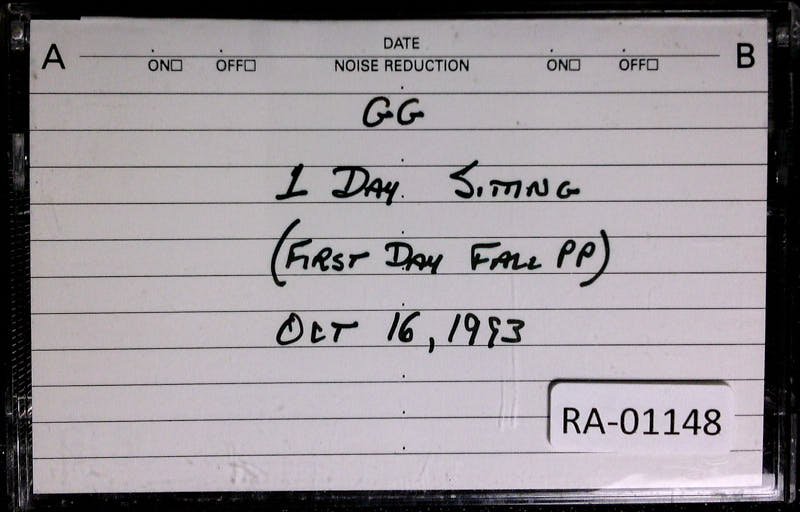 A DATE B
ON□ OFF□ NOISE REDUCTION ON□ OFF□
GG
1 DAY SITTING
(FIRST DAY FALL PP)
OCT 16, 1993
RA-01148